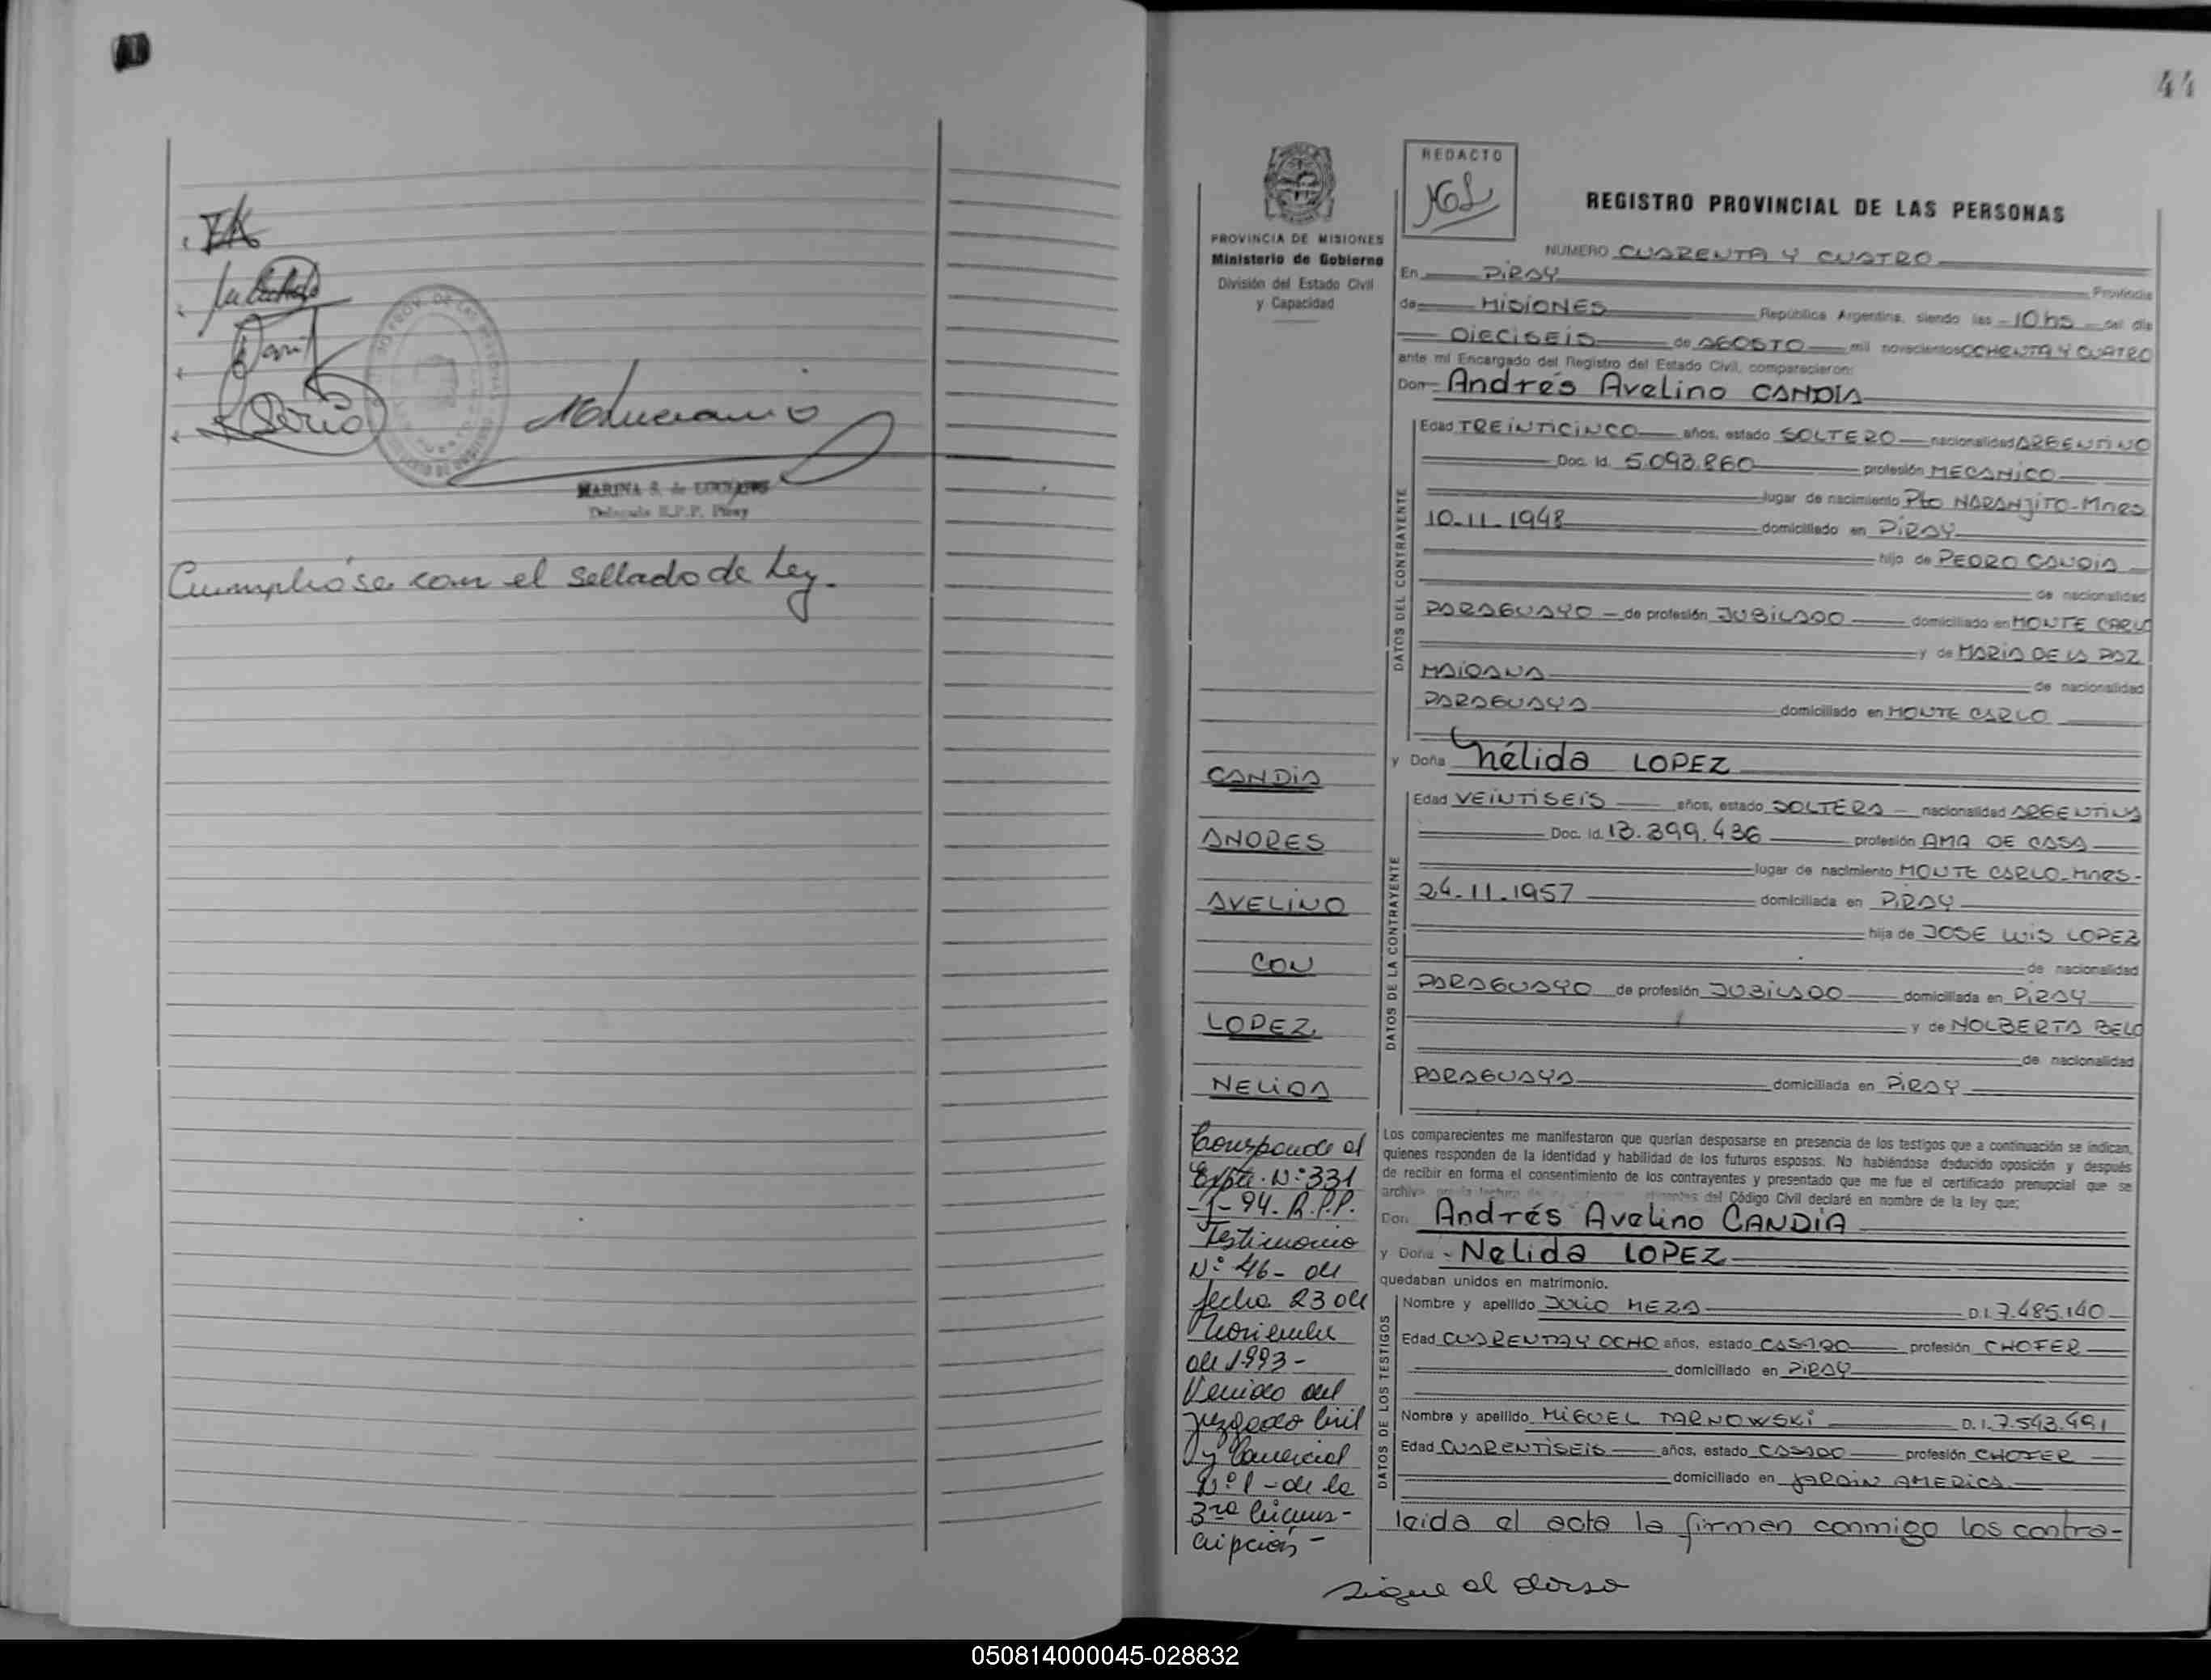 Cumplióse con el sellado de Ley.
44
REDACTO
PROVINCIA DE MISIONES
Ministerio de Gobierno
División del Estado Civil
y Capacidad
REGISTRO PROVINCIAL DE LAS PERSONAS
NUMERO CUARENTA Y CUATRO
En PIRAY Provincia
de MISIONES República Argentina, siendo las 10 hs del día
DIECISEIS de AGOSTO mil novecientos OCHENTA Y CUATRO
ante mi Encargado del Registro del Estado Civil, comparecieron:
Don Andrés Avelino CANDIA
DATOS DEL CONTRAYENTE
Edad TREINTICINCO años, estado SOLTERO nacionalidad ARGENTINO
Doc. Id. 5.093.860 profesión MECANICO
lugar de nacimiento Pto NARANJITO-Mnes
10-11-1948 domiciliado en PIRAY
hijo de PEDRO CANDIA
de nacionalidad
PARAGUAYO de profesión JUBILADO domiciliado en MONTE CARLO
y de MARIA DE LA PAZ
MAIDANA de nacionalidad
PARAGUAYA domiciliado en MONTE CARLO
y Doña Nélida LOPEZ
DATOS DE LA CONTRAYENTE
Edad VEINTISEIS años, estado SOLTERA nacionalidad ARGENTINA
Doc. Id. 13.399.436 profesión AMA DE CASA
lugar de nacimiento MONTE CARLO-Mnes-
24-11-1957 domiciliada en PIRAY
hija de JOSE LUIS LOPEZ
de nacionalidad
PARAGUAYO de profesión JUBILADO domiciliada en PIRAY
y de NOLBERTA BELO
de nacionalidad
PARAGUAYA domiciliada en PIRAY
CANDIA
ANDRES
AVELINO
CON
LOPEZ
NELIDA
Corresponde al
Expte. Nº 331
-1-94-R.P.P.
Testimonio
Nº 46- de
fecha 23 de
Noviembre
de 1993-
Venido del
Juzgado Civil
y Comercial
Nº 1 - de la
3ra Circuns-
cripción -
Los comparecientes me manifestaron que querían desposarse en presencia de los testigos que a continuación se indican,
quienes responden de la identidad y habilidad de los futuros esposos. No habiéndose deducido oposición y después
de recibir en forma el consentimiento de los contrayentes y presentado que me fue el certificado prenupcial que se
del Código Civil declaré en nombre de la ley que:
Don Andrés Avelino CANDIA
y Doña Nelida LOPEZ
quedaban unidos en matrimonio.
DATOS DE LOS TESTIGOS
Nombre y apellido JULIO MEZA D.I. 7.485.140
Edad CUARENTA Y OCHO años, estado CASADO profesión CHOFER
domiciliado en PIRAY
Nombre y apellido MIGUEL TARNOWSKI D.I. 7.543.491
Edad CUARENTISEIS años, estado CASADO profesión CHOFER
domiciliado en JARDIN AMERICA
leida el acta la firman conmigo los contra-
sigue al dorso
050814000045-028832